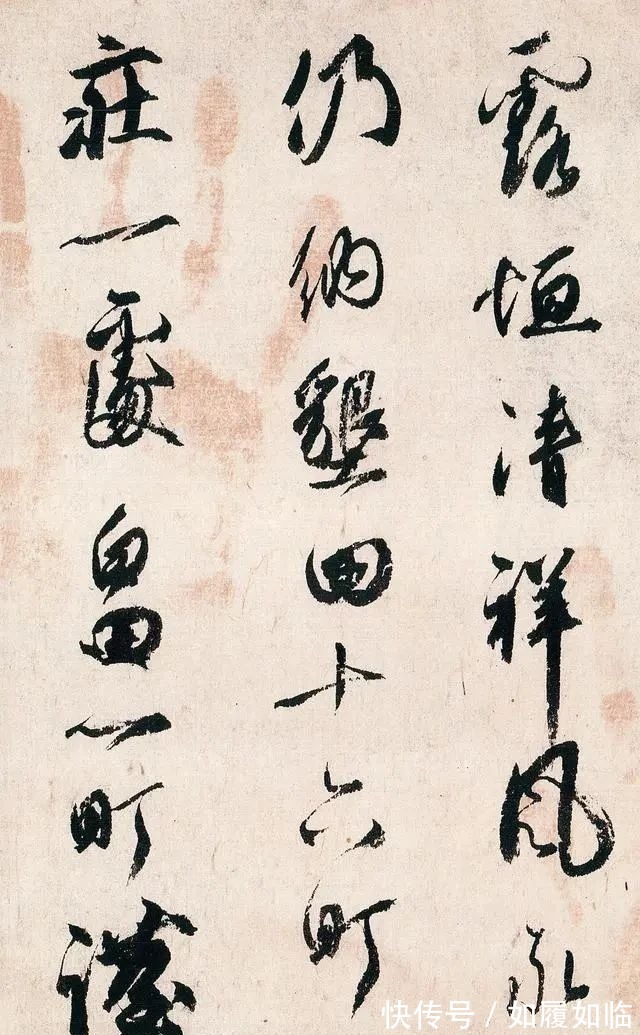 露恒清祥風永
仍納墾田十六町
莊一處畠一町
快传号/如履如临